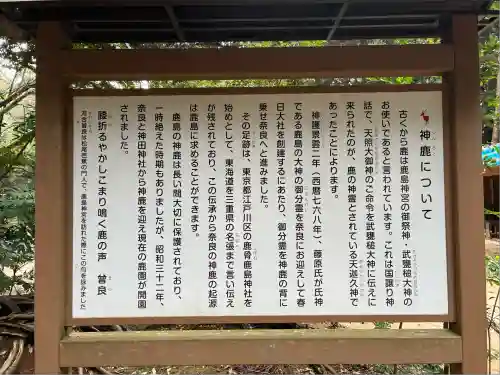 神鹿について
古くから鹿は鹿島神宮の御祭神・武甕槌大神の
お使いであると言われています。これは国譲り神
話で、天照大御神のご命令を武甕槌大神に伝えに
来られたのが、鹿の神霊とされている天迦久神で
あったことによります。
神護景雲二年（西暦七六八年）、藤原氏が氏神
である鹿島の大神の御分霊を奈良にお迎えして春
日大社を創建するにあたり、御分霊を神鹿の背に
乗せ奈良へと進みました。
その足跡は、東京都江戸川区の鹿骨鹿島神社を
始めとして、東海道を三重県の名張まで言い伝え
が残されており、この伝承から奈良の神鹿の起源
は鹿島に求めることができます。
鹿島の神鹿は長い間大切に保護されており、
一時絶えた時期もありましたが、昭和三十二年、
奈良と神田神社から神鹿を迎え現在の鹿園が開園
されました。
膝折るやかしこまり鳴く鹿の声　曽良
河合曽良は松尾芭蕉の門人で、鹿島神宮を訪れた際にこの句を詠みました